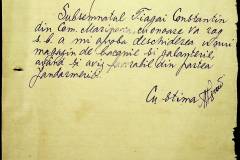 Subsemnatul Fiagai Constantin
din Com. Maripera, cu onoare Vă rog
s.b. a mi aproba deschiderea unui
magasin de bacanii si galanterie,
având și aviz favorabil din partea
Jandarmeriei.
Cu stima